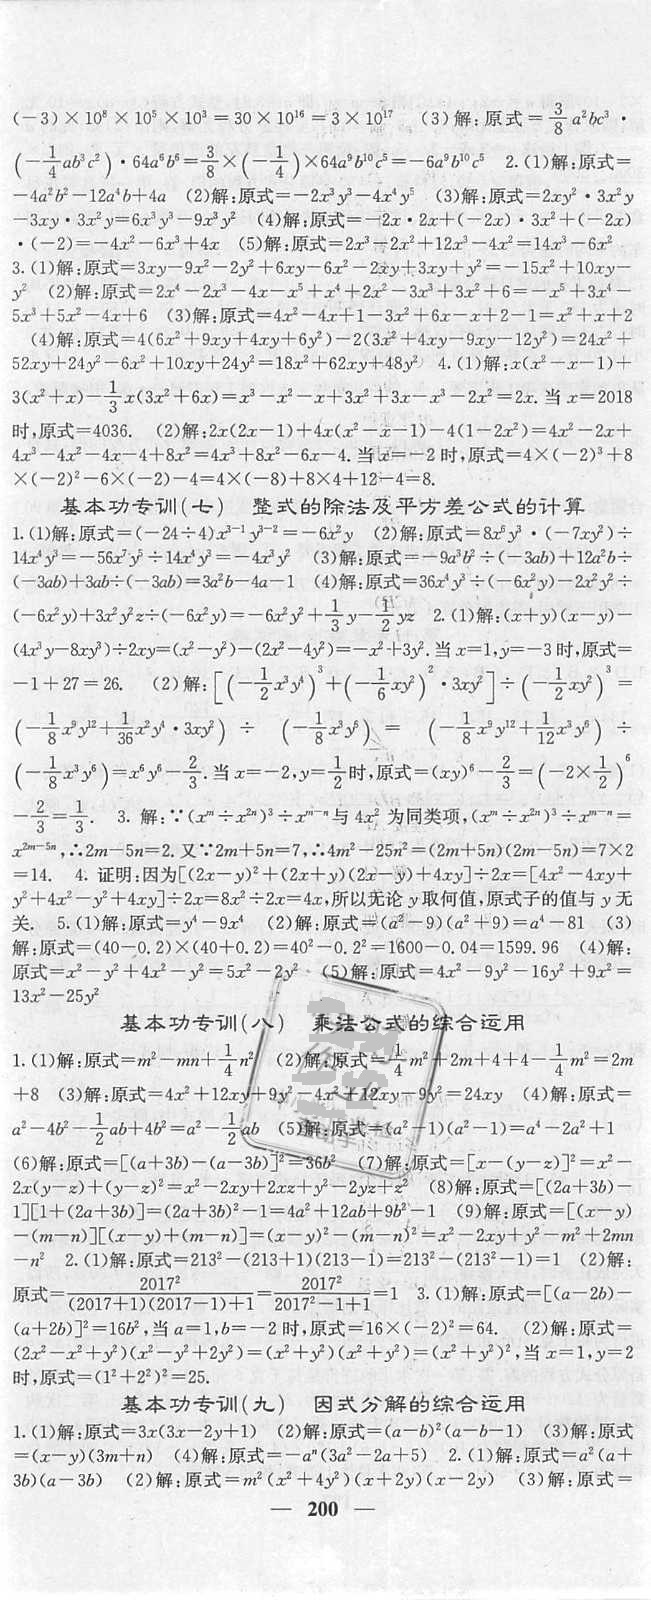 (-3)×10⁸×10⁵×10³=30×10¹⁶=3×10¹⁷ (3)解:原式=3/8a²bc³·
(-1/4ab³c²)·64a⁶b⁶=3/8×(-1/4)×64a⁹b¹⁰c⁵=-6a⁹b¹⁰c⁵ 2.(1)解:原式=
-4a²b²-12a⁴b+4a (2)解:原式=-2x³y³-4x⁴y⁵ (3)解:原式=2xy²·3x²y
-3xy·3x²y=6x³y³-9x³y² (4)解:原式=-2x·2x+(-2x)·3x²+(-2x)
·(-2)=-4x²-6x³+4x (5)解:原式=2x³-2x²+12x³-4x²=14x³-6x²
3.(1)解:原式=3xy-9x²-2y²+6xy-6x²-2xy+3xy+y²=-15x²+10xy-
y² (2)解:原式=2x⁴-2x³-4x-x⁵+x⁴+2x²-3x³+3x²+6=-x⁵+3x⁴-
5x³+5x²-4x+6 (3)解:原式=4x²-4x+1-3x²+6x-x+2-1=x²+x+2
(4)解:原式=4(6x²+9xy+4xy+6y²)-2(3x²+4xy-9xy-12y²)=24x²+
52xy+24y²-6x²+10xy+24y²=18x²+62xy+48y² 4.(1)解:x(x²-x-1)+
3(x²+x)-1/3x(3x²+6x)=x³-x²-x+3x²+3x-x³-2x²=2x.当x=2018
时,原式=4036. (2)解:2x(2x-1)+4x(x²-x-1)-4(1-2x²)=4x²-2x+
4x³-4x²-4x-4+8x²=4x³+8x²-6x-4.当x=-2时,原式=4×(-2)³+8
×(-2)²-6×(-2)-4=4×(-8)+8×4+12-4=8.
基本功专训(七) 整式的除法及平方差公式的计算
1.(1)解:原式=(-24÷4)x³⁻¹y³⁻²=-6x²y (2)解:原式=8x⁶y³·(-7xy²)÷
14x⁴y³=-56x⁷y⁵÷14x⁴y³=-4x³y² (3)解:原式=-9a³b²÷(-3ab)+12a²b÷
(-3ab)+3ab÷(-3ab)=3a²b-4a-1 (4)解:原式=36x⁴y³÷(-6x²y)-2x²y²÷
(-6x²y)+3x²y²z÷(-6x²y)=-6x²y²+1/3y-1/2yz 2.(1)解:(x+y)(x-y)-
(4x³y-8xy³)÷2xy=(x²-y²)-(2x²-4y²)=-x²+3y².当x=1,y=-3时,原式=
-1+27=26. (2)解:[(-1/2x³y⁴)³+(-1/6xy²)²·3xy²]÷(-1/2xy²)³=
(-1/8x⁹y¹²+1/36x²y⁴·3xy²)÷(-1/8x³y⁶)=(-1/8x⁹y¹²+1/12x³y⁶)÷
(-1/8x³y⁶)=x⁶y⁶-2/3.当x=-2,y=1/2时,原式=(xy)⁶-2/3=(-2×1/2)⁶
-2/3=1/3. 3.解:∵(xᵐ÷x²ⁿ)³÷xᵐ⁻ⁿ与4x²为同类项,(xᵐ÷x²ⁿ)³÷xᵐ⁻ⁿ=
x²ᵐ⁻⁵ⁿ,∴2m-5n=2.又∵2m+5n=7,∴4m²-25n²=(2m+5n)(2m-5n)=7×2
=14. 4.证明:因为[(2x-y)²+(2x+y)(2x-y)+4xy]÷2x=[4x²-4xy+
y²+4x²-y²+4xy]÷2x=8x²÷2x=4x,所以无论y取何值,原式子的值与y无
关. 5.(1)解:原式=y⁴-9x⁴ (2)解:原式=(a²-9)(a²+9)=a⁴-81 (3)
解:原式=(40-0.2)×(40+0.2)=40²-0.2²=1600-0.04=1599.96 (4)解:
原式=x²-y²+4x²-y²=5x²-2y² (5)解:原式=4x²-9y²-16y²+9x²=
13x²-25y²
基本功专训(八) 乘法公式的综合运用
1.(1)解:原式=m²-mn+1/4n² (2)解:原式=1/4m²+2m+4+4-1/4m²=2m
+8 (3)解:原式=4x²+12xy+9y²-4x²+12xy-9y²=24xy (4)解:原式=
a²-4b²-1/2ab+4b²=a²-1/2ab (5)解:原式=(a²-1)(a²-1)=a⁴-2a²+1
(6)解:原式=[(a+3b)-(a-3b)]²=36b² (7)解:原式=[x-(y-z)]²=x²-
2x(y-z)+(y-z)²=x²-2xy+2xz+y²-2yz+z² (8)解:原式=[(2a+3b)-
1][1+(2a+3b)]=(2a+3b)²-1=4a²+12ab+9b²-1 (9)解:原式=[(x-y)
-(m-n)][(x-y)+(m-n)]=(x-y)²-(m-n)²=x²-2xy+y²-m²+2mn
-n² 2.(1)解:原式=213²-(213+1)(213-1)=213²-(213²-1)=1 (2)解:
原式=2017²/((2017+1)(2017-1)+1)=2017²/(2017²-1+1)=1 3.(1)解:原式=[(a-2b)-
(a+2b)]²=16b²,当a=1,b=-2时,原式=16×(-2)²=64. (2)解:原式=
(2x²-x²+y²)(x²-y²+2y²)=(x²+y²)(x²+y²)=(x²+y²)²,当x=1,y=2
时,原式=(1²+2²)²=25.
基本功专训(九) 因式分解的综合运用
1.(1)解:原式=3x(3x-2y+1) (2)解:原式=(a-b)²(a-b-1) (3)解:原式
=(x-y)(3m+n) (4)解:原式=-aⁿ(3a²-2a+5) 2.(1)解:原式=a²(a+
3b)(a-3b) (2)解:原式=m²(x²+4y²)(x+2y)(x-2y) (3)解:原式=
— 200 —